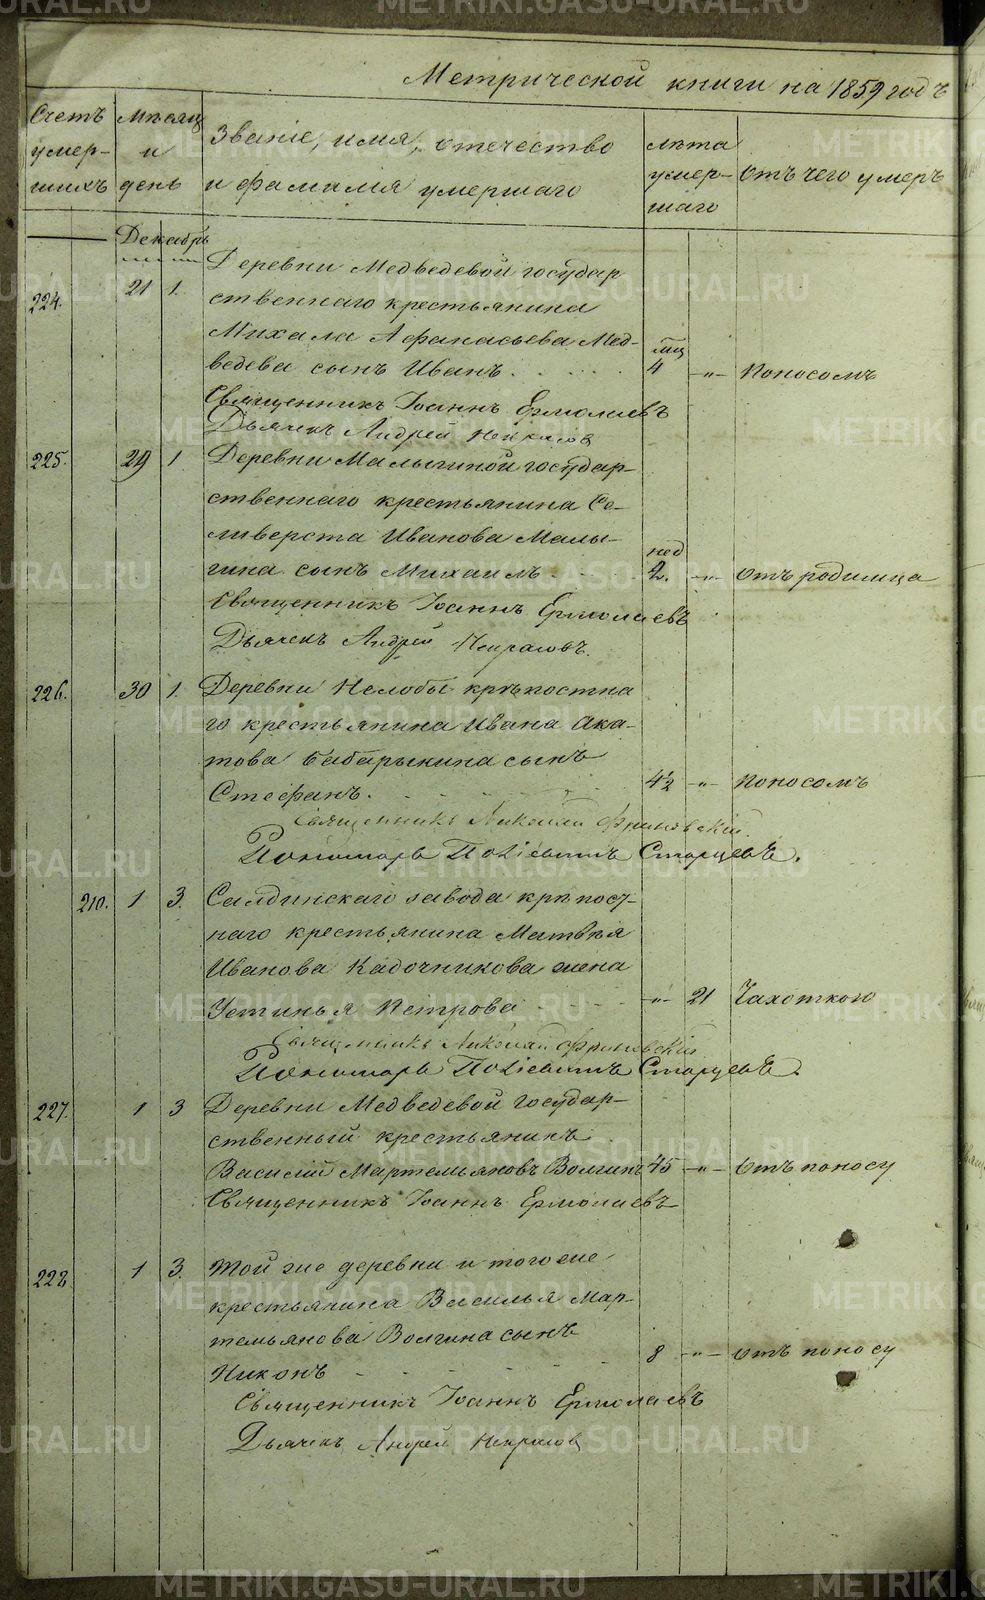 Метрической книги на 1859 годъ
Счетъ умер- шихъ
Мѣсяцъ и день
Званіе, имя, отечество
и фамилія умершаго
лѣта умер- шаго
Отъ чего умеръ
Декабрь
224. 21 1. Деревни Медведевой государ
ственнаго крестьянина
Михала Афанасьева Мед-
ведева сынъ Иванъ . . . . . мц 4 -„- Поносомъ
Священникъ Іоаннъ Ермолаевъ
Дьячекъ Андрей Некрасовъ
225. 29 1. Деревни Малыгиной государ-
ственнаго крестьянина Се-
ливерста Иванова Малы-
гина сынъ Михаилъ . . . нед 2. -„- Отъ родимца
Священникъ Іоаннъ Ермолаевъ
Дьячекъ Андрей Некрасовъ.
226. 30 1. Деревни Нелобы крѣпостна
го крестьянина Ивана Ака-
това Бабарыкина сынъ
Стефанъ. . . . . . 4½ -„- Поносомъ
Священникъ Николай Флоровскій.
Пономарь Поліевктъ Старцевъ.
210. 1 3. Салдинскаго завода крѣпост-
наго крестьянина Матвѣя
Иванова Кадочникова жена
Устинья Петрова . . . -„- 21 Чахоткою
Священникъ Николай Флоровскій
Пономарь Поліевктъ Старцевъ.
227. 1 3 Деревни Медведевой государ-
ственный крестьянинъ
Василій Мартемьяновъ Волгинъ 45 -„- Отъ поносу
Священникъ Іоаннъ Ермолаевъ
228 1 3. Той же деревни и того же
крестьянина Василья Мар-
темьянова Волгина сынъ
Никонъ - - - - - 8 -„- Отъ поносу
Священникъ Іоаннъ Ермолаевъ
Дьячекъ Андрей Некрасовъ
METRIKI.GASO-URAL.RU